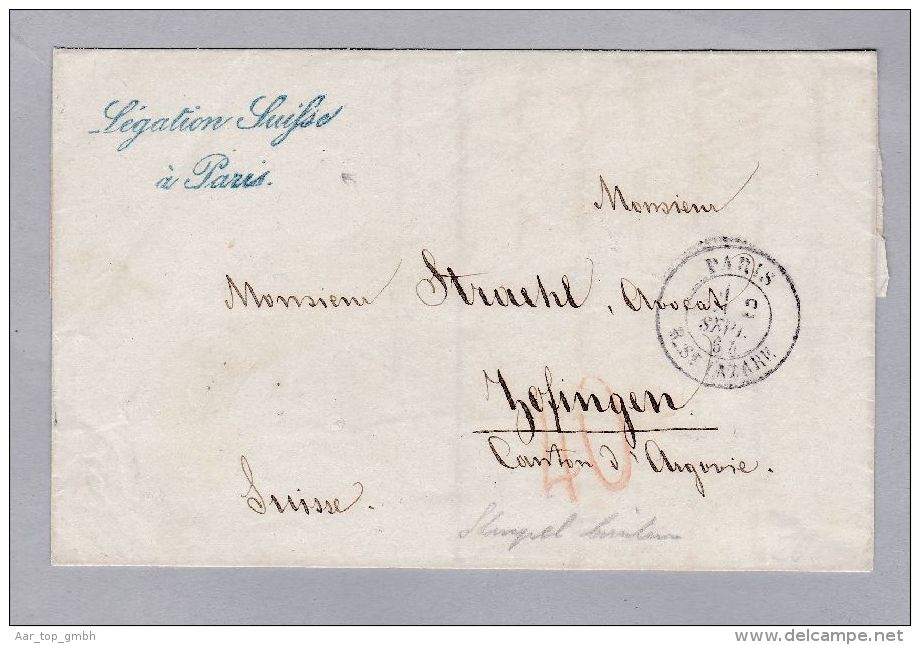 Légation Suisse
à Paris.
Monsieur
Monsieur Straehl, Avocat
Zofingen
Canton d'Argovie.
Suisse.
40
PARIS
SEPT.
64
R. ST LAZARE
Stempel
Aar_top_gmbh
www.delcampe.net